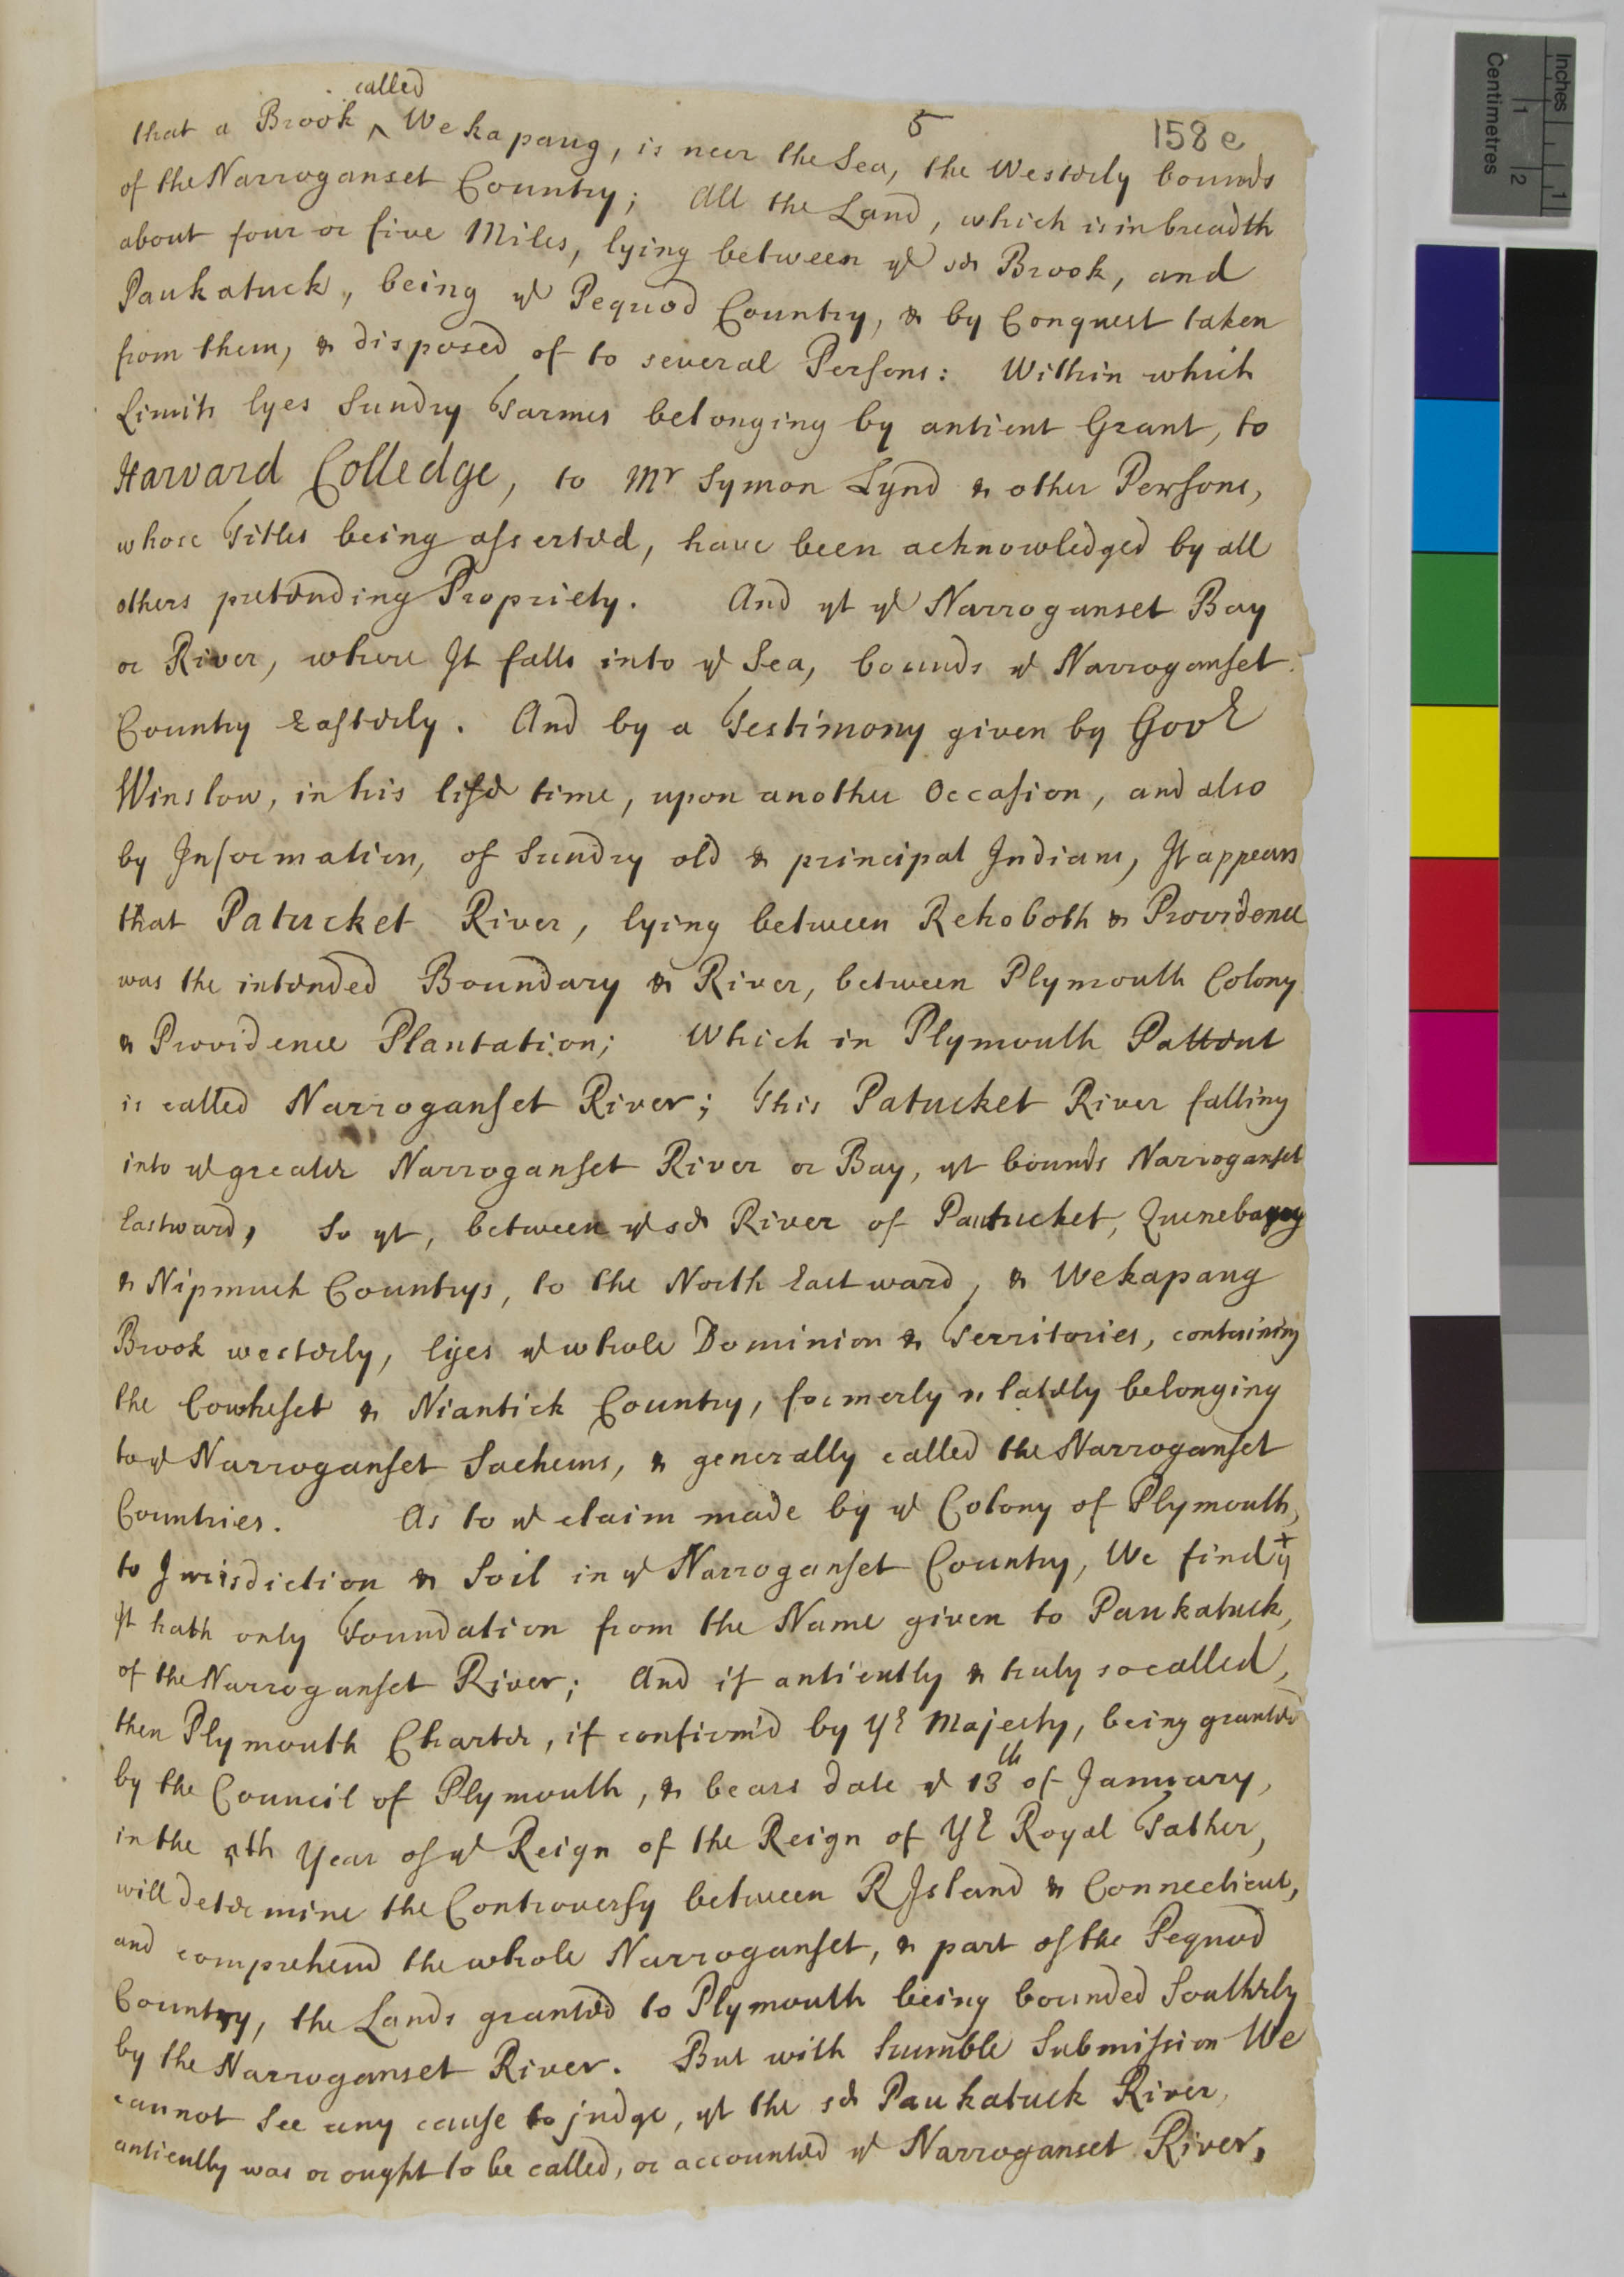 5
158 e
called
that a Brook ^ Wekapang, is near the Sea, the Westerly bounds
of the Narroganset Country; All the Land, which is in breadth
about four or five Miles, lying between ye sd Brook, and
Paukatuck, being ye Pequod Country, & by Conquest taken
from them, & disposed of to several Persons: Within which
Limits lyes Sundry Farmes belonging by antient Grant, to
Harvard Colledge, to Mr Symon Lynd & other Persons,
whose Titles being asserted, have been acknowledged by all
others pretending Propriety. And yt ye Narroganset Bay
or River, where It falls into ye Sea, bounds ye Narroganset
Country Easterly. And by a Testimony given by Govr
Winslow, in his life time, upon another Occasion, and also
by Information, of Sundry old & principal Indians, It appears
that Patucket River, lying between Rehoboth & Providence
was the intended Boundary & River, between Plymouth Colony
& Providence Plantation; Which in Plymouth Pattent
is called Narroganset River; This Patucket River falling
into ye greater Narroganset River or Bay, yt bounds Narroganset
Eastward, So yt, between ye sd River of Pautucket,
& Nipmuck Countrys, to the North Eastward, & Wekapang
Brook westerly, lyes ye whole Dominion & Territories, containing
the Cowheset & Niantick Country, formerly & lately belonging
to ye Narroganset Sachems, & generally called the Narroganset
Countries. As to ye claim made by ye Colony of Plymouth,
to Jurisdiction & Soil in ye Narroganset Country, We find yt
It hath only Foundation from the Name given to Paukatuck,
of the Narroganset River; And if antiently & truly so called,
then Plymouth Charter, if confirm'd by Yr Majesty, being granted
by the Council of Plymouth, & bears date ye 13th of January,
in the ^th Year of ye Reign of the Reign of Yr Royal Father,
will determine the Controversy between R Island & Connecticut,
and comprehend the whole Narroganset, & part of the Pequod
Country, the Lands granted to Plymouth being bounded Southerly
by the Narroganset River. But with humble Submission We
cannot See any cause to judge, yt the sd Paukatuck River,
antiently was or ought to be called, or accounted ye Narroganset River,
Inches
1
Centimetres
1
2